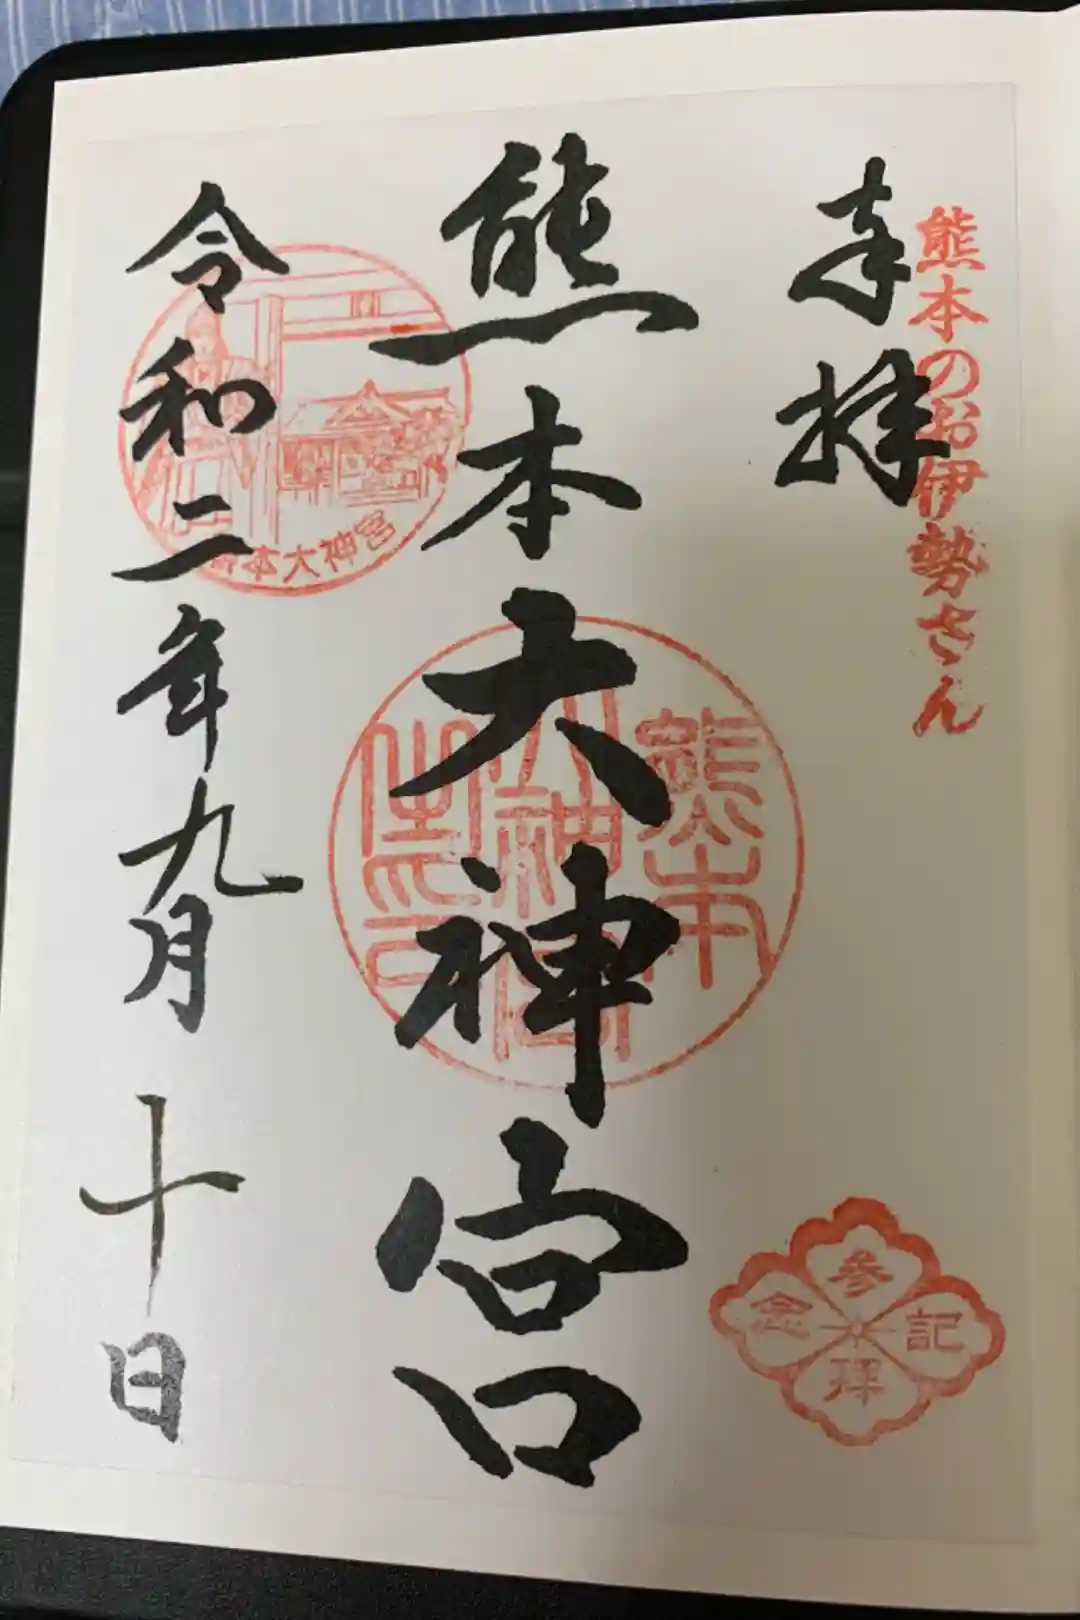 熊本のお伊勢さん
奉拝
熊本大神宮
令和二年九月十日
熊本大神宮
熊本
大神宮
之印
参拝記念